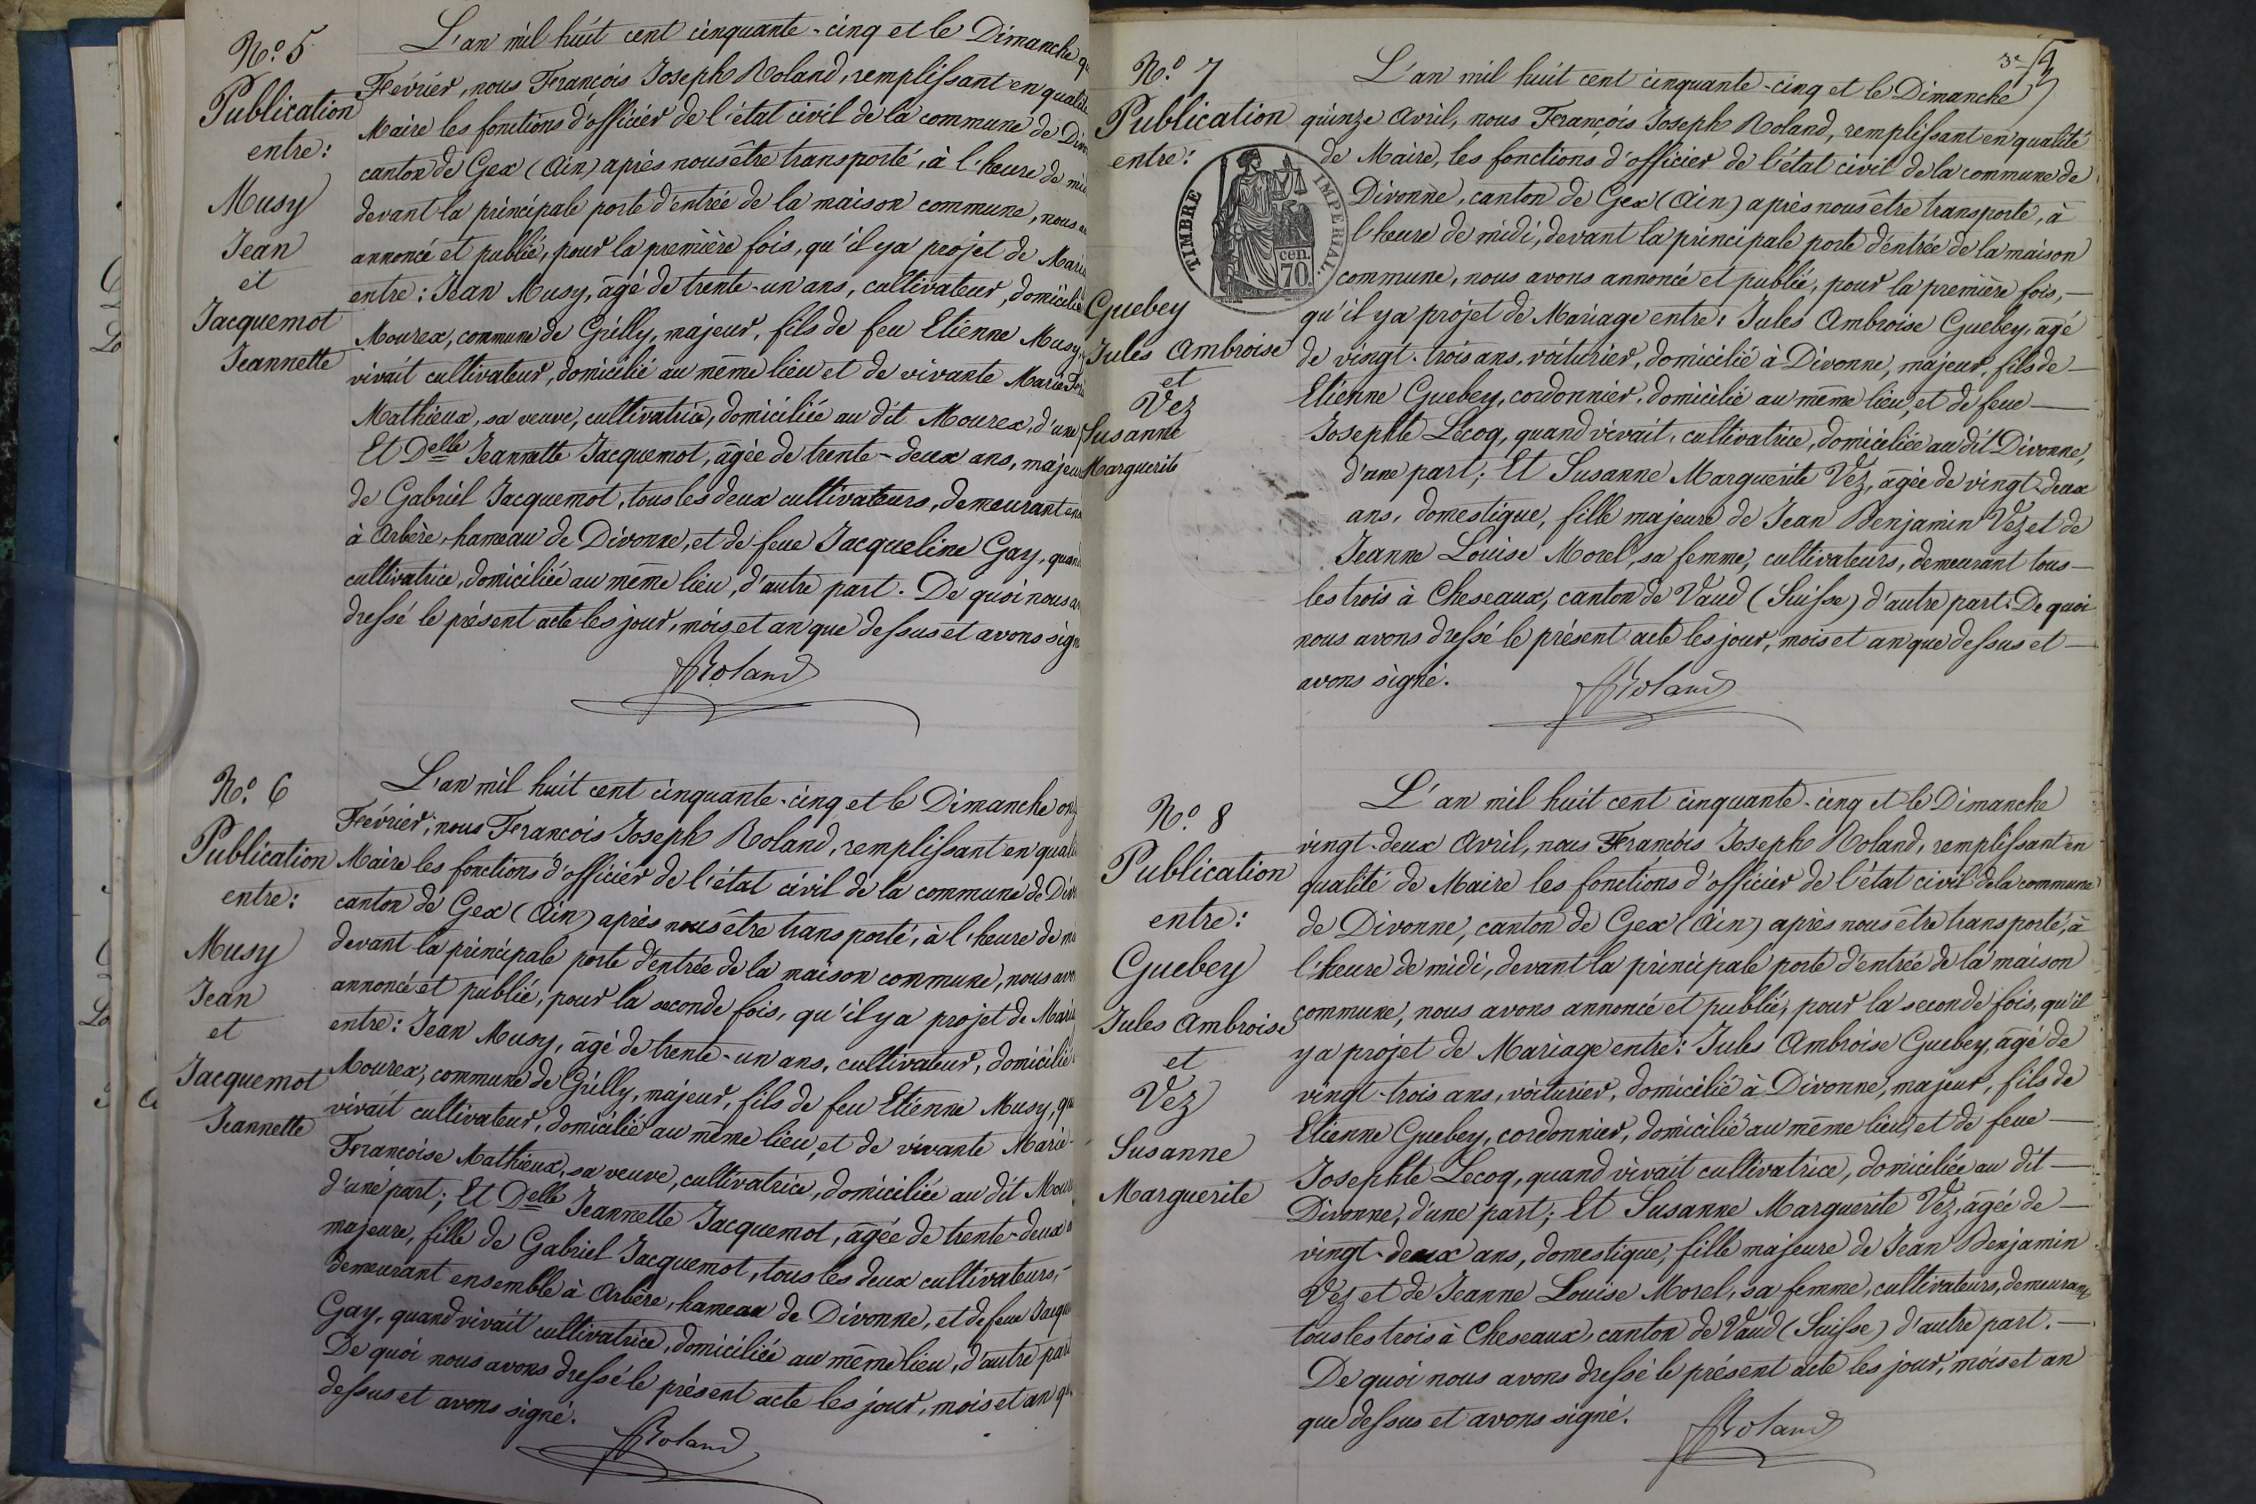 N.º 5
Publication
entre:
Musy
Jean
et
Jacquemot
Jeannette
L'an mil huit cent cinquante-cinq et le Dimanche
Février, nous François Joseph Roland, remplissant en qualité
Maire les fonctions d'officier de l'état civil de la commune de
canton de Gex (Ain) après nous être transporté, à l'heure de
devant la principale porte d'entrée de la maison commune, nous
annoncé et publié, pour la première fois, qu'il y a projet de
entre: Jean Musy, âgé de trente-un ans, cultivateur, domicilié
Mourex, commune de Grilly, majeur, fils de feu Etienne Musy,
vivait cultivateur, domicilié au même lieu et de vivante Marie
Mathieux, sa veuve, cultivatrice, domiciliée au dit Mourex, d'une
Et Delle Jeannette Jacquemot, âgée de trente-deux ans,
de Gabriel Jacquemot, tous les deux cultivateurs, demeurant
à Arbère, hameau de Divonne, et de feue Jacqueline Gay,
cultivatrice, domiciliée au même lieu, d'autre part. De quoi nous
dressé le présent acte les jour, mois et an que dessus et avons
Roland
N.º 6
Publication
entre:
Musy
Jean
et
Jacquemot
Jeannette
L'an mil huit cent cinquante-cinq et le Dimanche
Février, nous François Joseph Roland, remplissant en
Maire les fonctions d'officier de l'état civil de la commune de
canton de Gex (Ain) après nous être transporté, à l'heure de
devant la principale porte d'entrée de la maison commune, nous
annoncé et publié, pour la seconde fois, qu'il y a projet de
entre: Jean Musy, âgé de trente-un ans, cultivateur, domicilié
Mourex, commune de Grilly, majeur, fils de feu Etienne Musy,
vivait cultivateur, domicilié au même lieu, et de vivante Marie-
Françoise Mathieux, sa veuve, cultivatrice, domiciliée au dit
d'une part; Et Delle Jeannette Jacquemot, âgée de trente-deux
majeure, fille de Gabriel Jacquemot, tous les deux cultivateurs,-
demeurant ensemble à Arbère, hameau de Divonne, et de feue
Gay, quand vivait cultivatrice, domiciliée au même lieu, d'autre
De quoi nous avons dressé le présent acte les jour, mois et an
dessus et avons signé.
Roland
3e
N.º 7
Publication
entre:
TIMBRE IMPERIAL.
cen.
70.
Guebey
Jules Ambroise
et
Vez
Susanne
Marguerite
L'an mil huit cent cinquante-cinq et le Dimanche
quinze Avril, nous François Joseph Roland, remplissant en qualité
de Maire, les fonctions d'officier de l'état civil de la commune de
Divonne, canton de Gex (Ain) après nous être transporté, à
l'heure de midi, devant la principale porte d'entrée de la maison
commune, nous avons annoncé et publié, pour la première fois,—
qu'il y a projet de Mariage entre: Jules Ambroise Guebey, âgé
de vingt-trois ans, voiturier, domicilié à Divonne, majeur, fils de—
Etienne Guebey, cordonnier, domicilié au même lieu, et de feue—
Josephte Lecoq, quand vivait, cultivatrice, domiciliée au dit Divonne,
d'une part; Et Susanne Marguerite Vez, âgée de vingt-deux
ans, domestique, fille majeure de Jean Benjamin Vez et de
Jeanne Louise Morel, sa femme, cultivateurs, demeurant tous—
les trois à Cheseaux, canton de Vaud (Suisse) d'autre part. De quoi
nous avons dressé le présent acte les jour, mois et an que dessus et—
avons signé.
Roland
N.º 8
Publication
entre:
Guebey
Jules Ambroise
et
Vez
Susanne
Marguerite
L'an mil huit cent cinquante-cinq et le Dimanche
vingt-deux Avril, nous François Joseph Roland, remplissant en
qualité de Maire les fonctions d'officier de l'état civil de la commune
de Divonne, canton de Gex (Ain) après nous être transporté, à
l'heure de midi, devant la principale porte d'entrée de la maison
commune, nous avons annoncé et publié, pour la seconde fois, qu'il
y a projet de Mariage entre: Jules Ambroise Guebey, âgé de
vingt-trois ans, voiturier, domicilié à Divonne, majeur, fils de
Etienne Guebey, cordonnier, domicilié au même lieu, et de feue—
Josephte Lecoq, quand vivait cultivatrice, domiciliée au dit—
Divonne, d'une part; Et Susanne Marguerite Vez, âgée de—
vingt-deux ans, domestique, fille majeure de Jean Benjamin
Vez et de Jeanne Louise Morel, sa femme, cultivateurs, demeurant
tous les trois à Cheseaux, canton de Vaud (Suisse) d'autre part.—
De quoi nous avons dressé le présent acte les jour, mois et an
que dessus et avons signé.
Roland